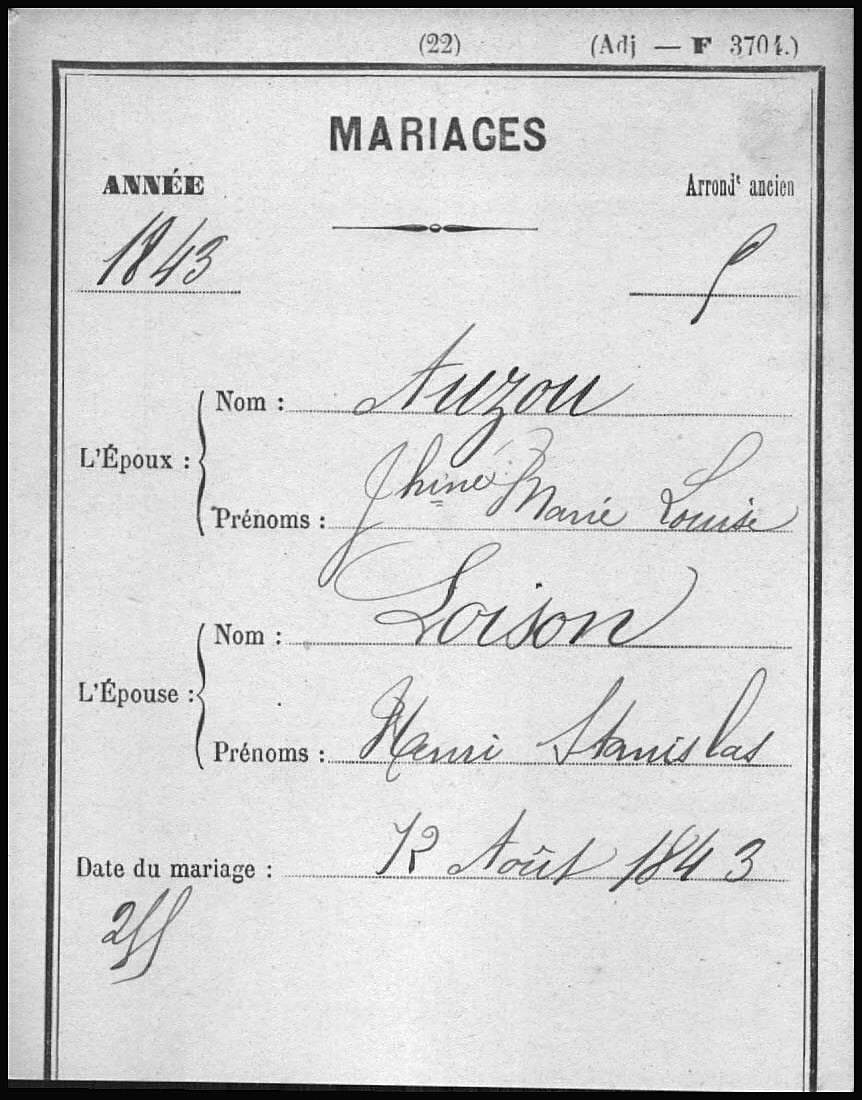 (22) (Adj — F 3704.)
MARIAGES
ANNÉE Arrondt ancien
1843 5
L'Époux :
Nom : Auzou
Prénoms : Jhine Marie Louise
L'Épouse :
Nom : Loison
Prénoms : Henri Stanislas
Date du mariage : 12 Août 1843
255